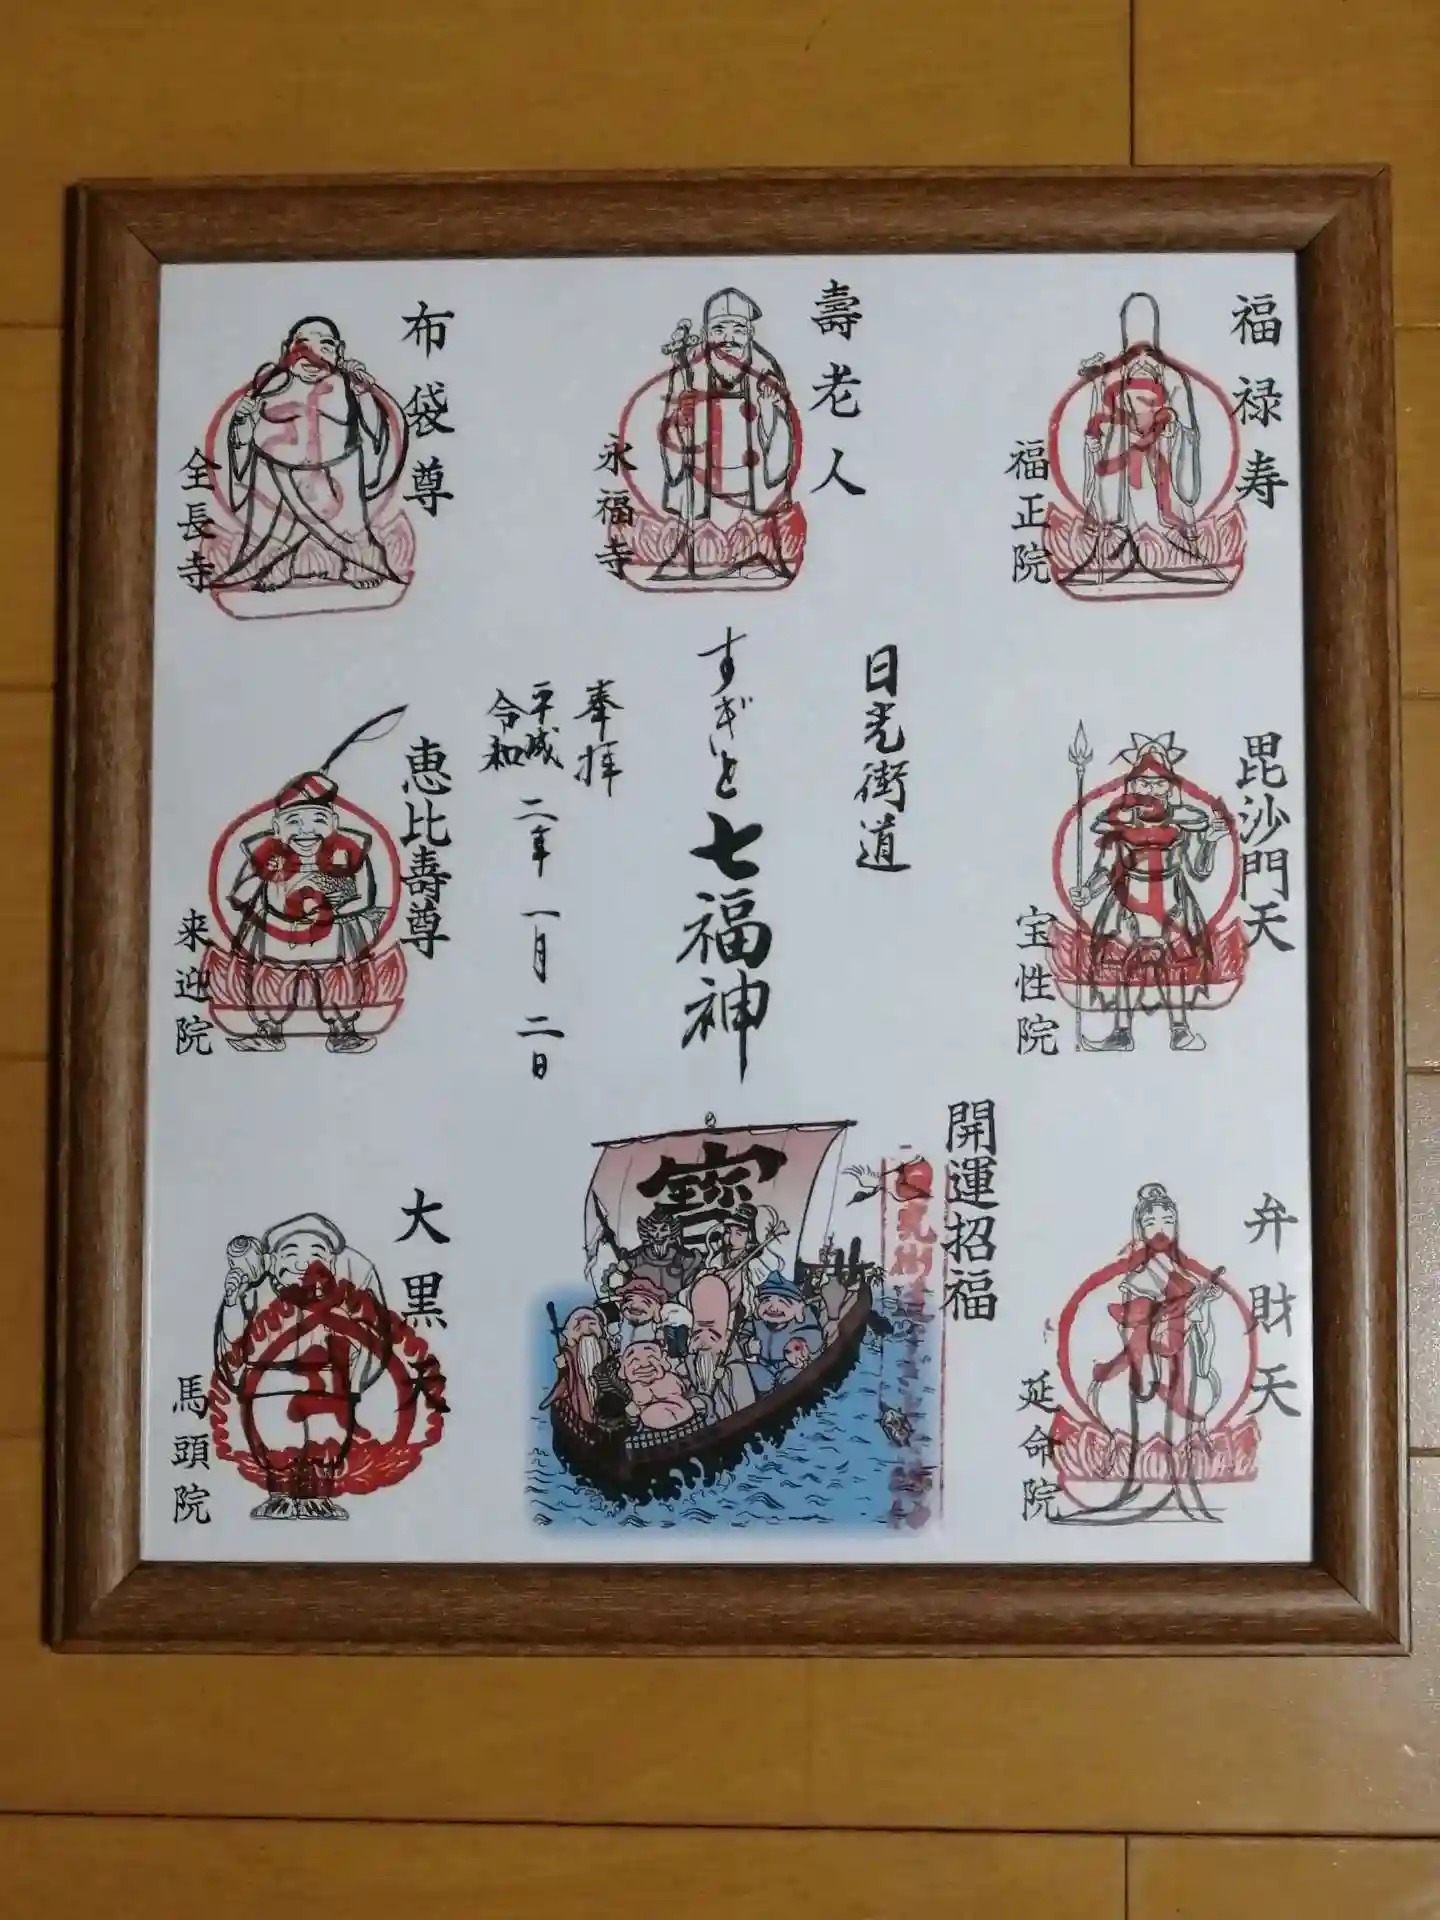 福禄寿
福正院
壽老人
永福寺
布袋尊
全長寺
毘沙門天
宝性院
日光街道
すぎと七福神
奉拝
平成
令和
二年 一月 二日
恵比壽尊
来迎院
弁財天
延命院
開運招福
寳
大黒天
馬頭院